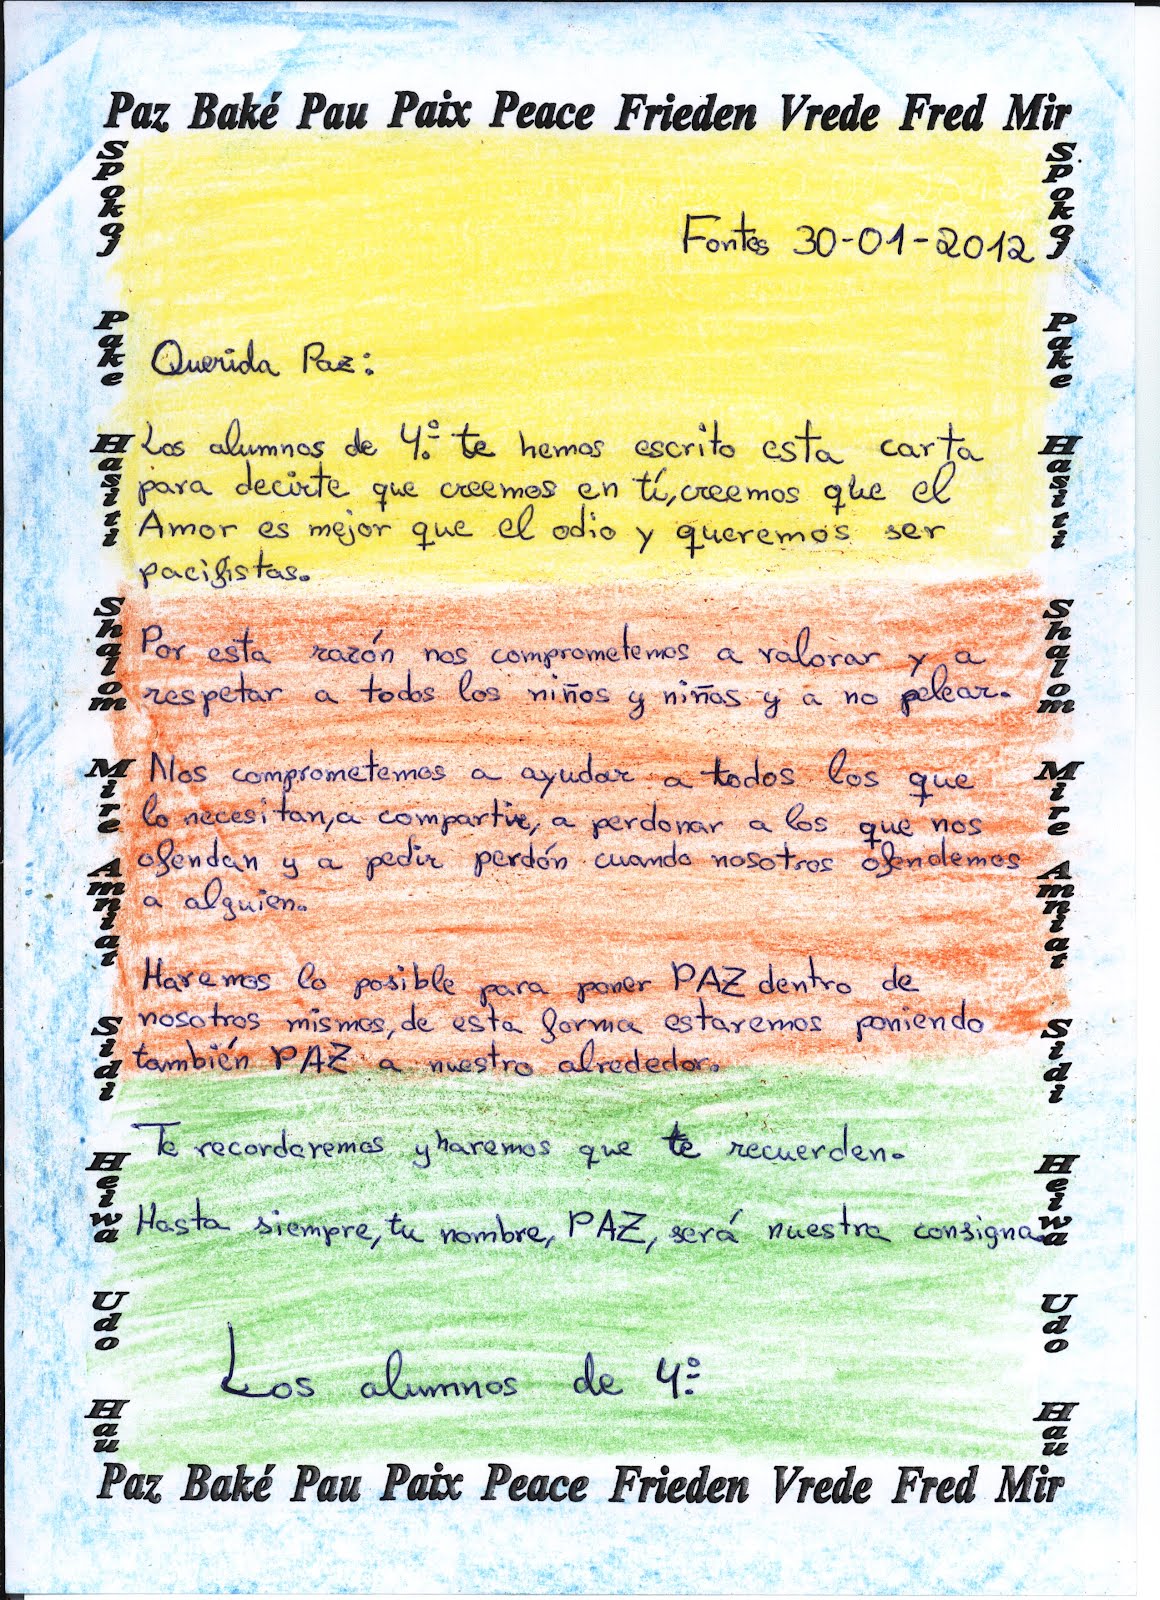 Paz Baké Pau Paix Peace Frieden Vrede Fred Mir
Spokoj
Pake
Hasiti
Shalom
Mire
Amniat
Sidi
Heiwa
Udo
Hau
Fontes 30-01-2012
Querida Paz:
Los alumnos de 4.º te hemos escrito esta carta
para decirte que creemos en tí, creemos que el
Amor es mejor que el odio y queremos ser
pacifistas.
Por esta razón nos comprometemos a valorar y a
respetar a todos los niños y niñas y a no pelear.
Nos comprometemos a ayudar a todos los que
lo necesitan, a compartir, a perdonar a los que nos
ofendan y a pedir perdón cuando nosotros ofendemos
a alguien.
Haremos lo posible para poner PAZ dentro de
nosotros mismos, de esta forma estaremos poniendo
también PAZ a nuestro alrededor.
Te recordaremos y haremos que te recuerden.
Hasta siempre, tu nombre, PAZ, será nuestra consigna.
Los alumnos de 4.º
Spokoj
Pake
Hasiti
Shalom
Mire
Amniat
Sidi
Heiwa
Udo
Hau
Paz Baké Pau Paix Peace Frieden Vrede Fred Mir